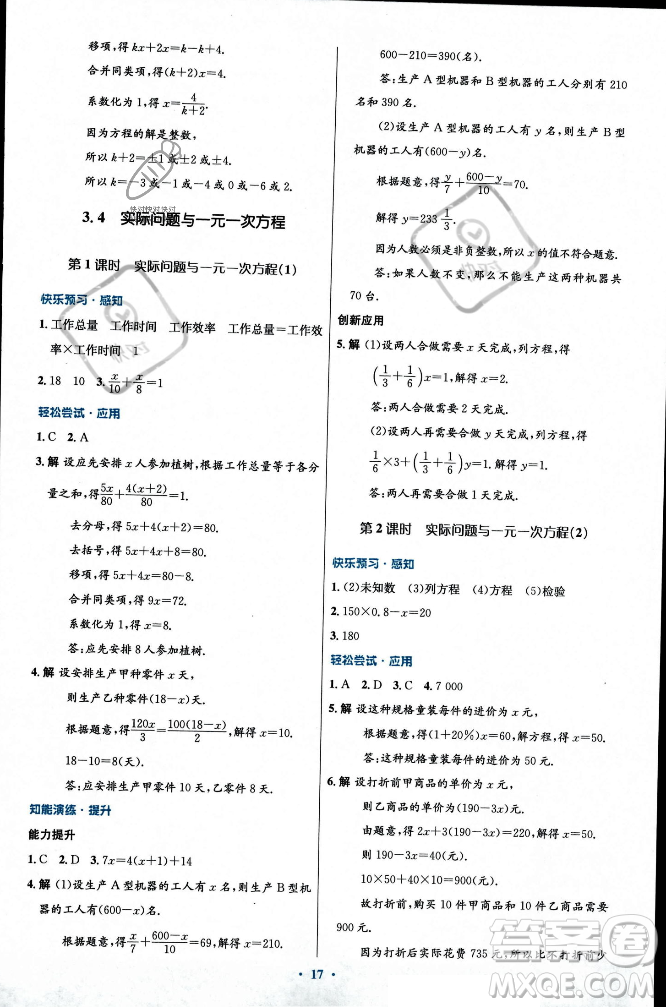 移项,得kx+2x=k-k+4.
合并同类项,得(k+2)x=4.
系数化为1,得x=4/(k+2).
因为方程的解是整数,
所以k+2=±1或±2或±4.
所以k=-3或-1或-4或0或-6或2.
3.4 实际问题与一元一次方程
第1课时 实际问题与一元一次方程(1)
快乐预习·感知
1.工作总量 工作时间 工作效率 工作总量=工作效
率×工作时间 1
2.18 10 3.x/10+x/8=1
轻松尝试·应用
1.C 2.A
3.解 设应先安排x人参加植树,根据工作总量等于各分
量之和,得5x/80+4(x+2)/80=1.
去分母,得5x+4(x+2)=80.
去括号,得5x+4x+8=80.
移项,得5x+4x=80-8.
合并同类项,得9x=72.
系数化为1,得x=8.
答:应先安排8人参加植树.
4.解 设安排生产甲种零件x天,
则生产乙种零件(18-x)天.
根据题意,得120x/3=100(18-x)/2,解得x=10.
18-10=8(天).
答:应安排生产甲零件10天,乙零件8天.
知能演练·提升
能力提升
1.C 2.D 3.7x=4(x+1)+14
4.解 (1)设生产A型机器的工人有x名,则生产B型机
器的工人有(600-x)名.
根据题意,得x/7+(600-x)/6=69,解得x=210.
600-210=390(名).
答:生产A型机器和B型机器的工人分别有210
名和390名.
(2)设生产A型机器的工人有y名,则生产B型机
器的工人有(600-y)名.
根据题意,得y/7+(600-y)/10=70.
解得y=233 1/3.
因为人数必须是非负整数,所以x的值不符合题意.
答:如果人数不变,那么不能生产这两种机器共
70台.
创新应用
5.解 (1)设两人合做需要x天完成,列方程,得
(1/3+1/6)x=1,解得x=2.
答:两人合做需要2天完成.
(2)设两人再需要合做x天完成,列方程,得
1/6×3+(1/3+1/6)x=1,解得x=1.
答:两人再需要合做1天完成.
第2课时 实际问题与一元一次方程(2)
快乐预习·感知
1.(2)未知数 (3)列方程 (4)方程 (5)检验
2.150×0.8-x=20
3.180
轻松尝试·应用
1.A 2.D 3.C 4.7 000
5.解 设这种规格童装每件的进价为x元,
根据题意,得(1+20%)x=60,解得x=50.
答:这种规格童装每件的进价为50元.
6.解 设打折前甲商品的单价为x元,
则乙商品的单价为(190-3x)元.
由题意,得2x+4(190-3x)=260,解得x=50.
190-3x=40.
10×50+10×40=900(元).
故打折前,购买10件甲商品和10件乙商品需要
900元.
因为打折后实际花费735元,所以比不打折前少
17